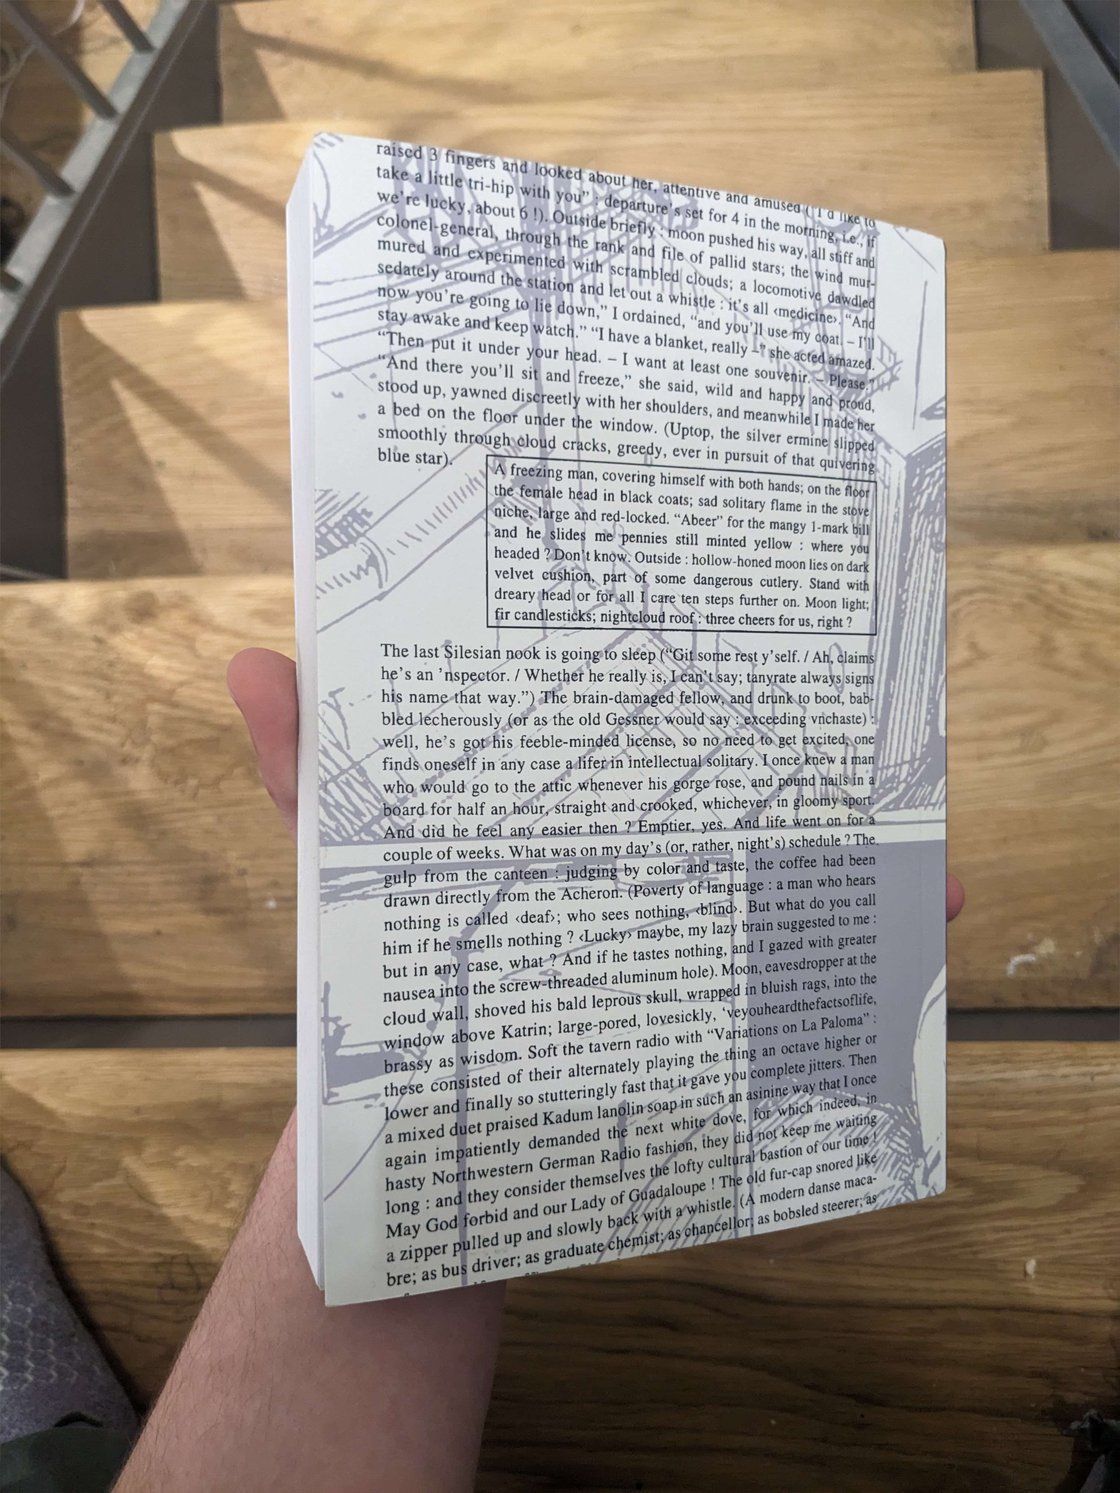 raised 3 fingers and looked about her, attentive and amused (“I’d like to
take a little tri-hip with you” : departure’s set for 4 in the morning, i.e., if
we’re lucky, about 6 !). Outside briefly : moon pushed his way, all stiff and
colonel-general, through the rank and file of pallid stars; the wind mur-
mured and experimented with scrambled clouds; a locomotive dawdled
sedately around the station and let out a whistle : it’s all ‹medicine›. “And
now you’re going to lie down,” I ordained, “and you’ll use my coat. – I’ll
stay awake and keep watch.” “I have a blanket, really –” she acted amazed.
“Then put it under your head. – I want at least one souvenir. – Please.”
“And there you’ll sit and freeze,” she said, wild and happy and proud,
stood up, yawned discreetly with her shoulders, and meanwhile I made her
a bed on the floor under the window. (Uptop, the silver ermine slipped
smoothly through cloud cracks, greedy, ever in pursuit of that quivering
blue star).
A freezing man, covering himself with both hands; on the floor
the female head in black coats; sad solitary flame in the stove
niche, large and red-locked. “Abeer” for the mangy 1-mark bill
and he slides me pennies still minted yellow : where you
headed ? Don’t know. Outside : hollow-honed moon lies on dark
velvet cushion, part of some dangerous cutlery. Stand with
dreary head or for all I care ten steps further on. Moon light;
fir candlesticks; nightcloud roof : three cheers for us, right ?
The last Silesian nook is going to sleep (“Git some rest y’self. / Ah, claims
he’s an ’nspector. / Whether he really is, I can’t say; tanyrate always signs
his name that way.”) The brain-damaged fellow, and drunk to boot, bab-
bled lecherously (or as the old Gessner would say : exceeding vnchaste) :
well, he’s got his feeble-minded license, so no need to get excited; one
finds oneself in any case a lifer in intellectual solitary. I once knew a man
who would go to the attic whenever his gorge rose, and pound nails in a
board for half an hour, straight and crooked, whichever, in gloomy sport.
And did he feel any easier then ? Emptier, yes. And life went on for a
couple of weeks. What was on my day’s (or, rather, night’s) schedule ? The
gulp from the canteen : judging by color and taste, the coffee had been
drawn directly from the Acheron. (Poverty of language : a man who hears
nothing is called ‹deaf›; who sees nothing, ‹blind›. But what do you call
him if he smells nothing ? ‹Lucky› maybe, my lazy brain suggested to me :
but in any case, what ? And if he tastes nothing, and I gazed with greater
nausea into the screw-threaded aluminum hole). Moon, eavesdropper at the
cloud wall, shoved his bald leprous skull, wrapped in bluish rags, into the
window above Katrin; large-pored, lovesickly, ’veyouheardthefactsoflife,
brassy as wisdom. Soft the tavern radio with “Variations on La Paloma” :
these consisted of their alternately playing the thing an octave higher or
lower and finally so stutteringly fast that it gave you complete jitters. Then
a mixed duet praised Kadum lanolin soap in such an asinine way that I once
again impatiently demanded the next white dove, for which indeed, in
hasty Northwestern German Radio fashion, they did not keep me waiting
long : and they consider themselves the lofty cultural bastion of our time !
May God forbid and our Lady of Guadaloupe ! The old fur-cap snored like
a zipper pulled up and slowly back with a whistle. (A modern danse maca-
bre; as bus driver; as graduate chemist; as chancellor; as bobsled steerer; as